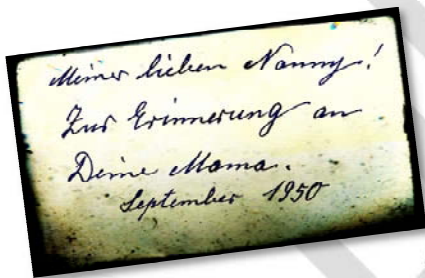 Meiner lieben Nanny!
Zur Erinnerung an
Deine Mama.
September 1950